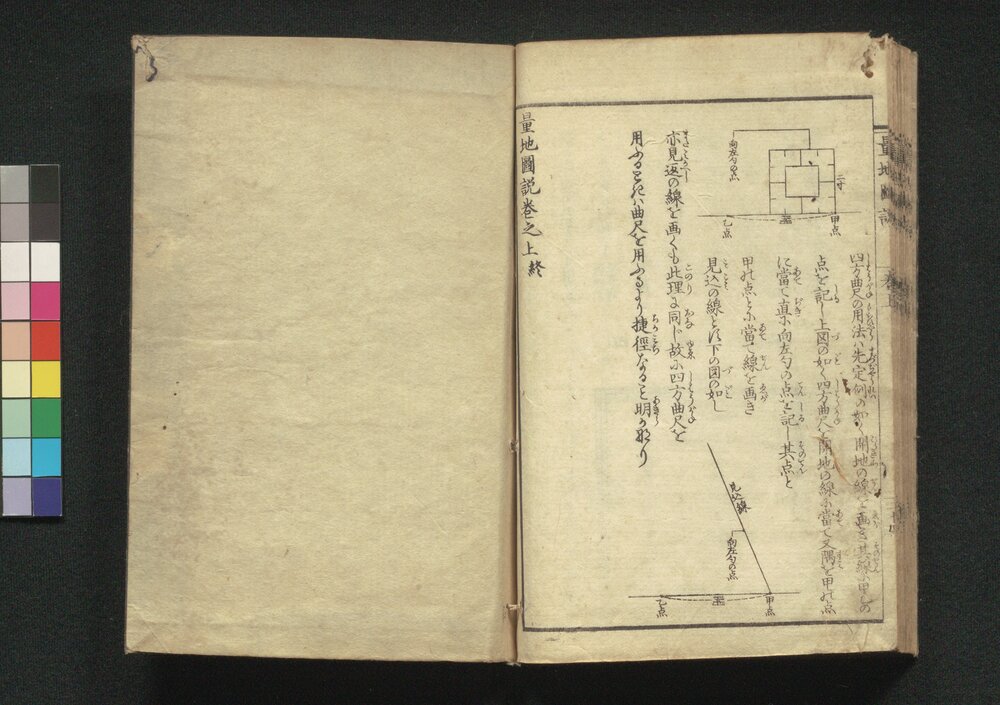 四方曲尺の用法ハ先定例の如く開地の線を画き其線ハ甲乙の
点を記し上図の如く四方曲尺を開地の線に當て又隅を甲の点
に當て直に向左勾の点を記し其点と
甲の点とに當て線を画き
見込の線とす下の図の如し
亦見返の線を画くも此理に同じ故に四方曲尺を
用ふるときハ曲尺を用ふるより捷径なること明か那り
量地圖説巻之上終
向左勾の点
二寸
甲点
乙点
見込線
向左勾の点
甲点
乙点